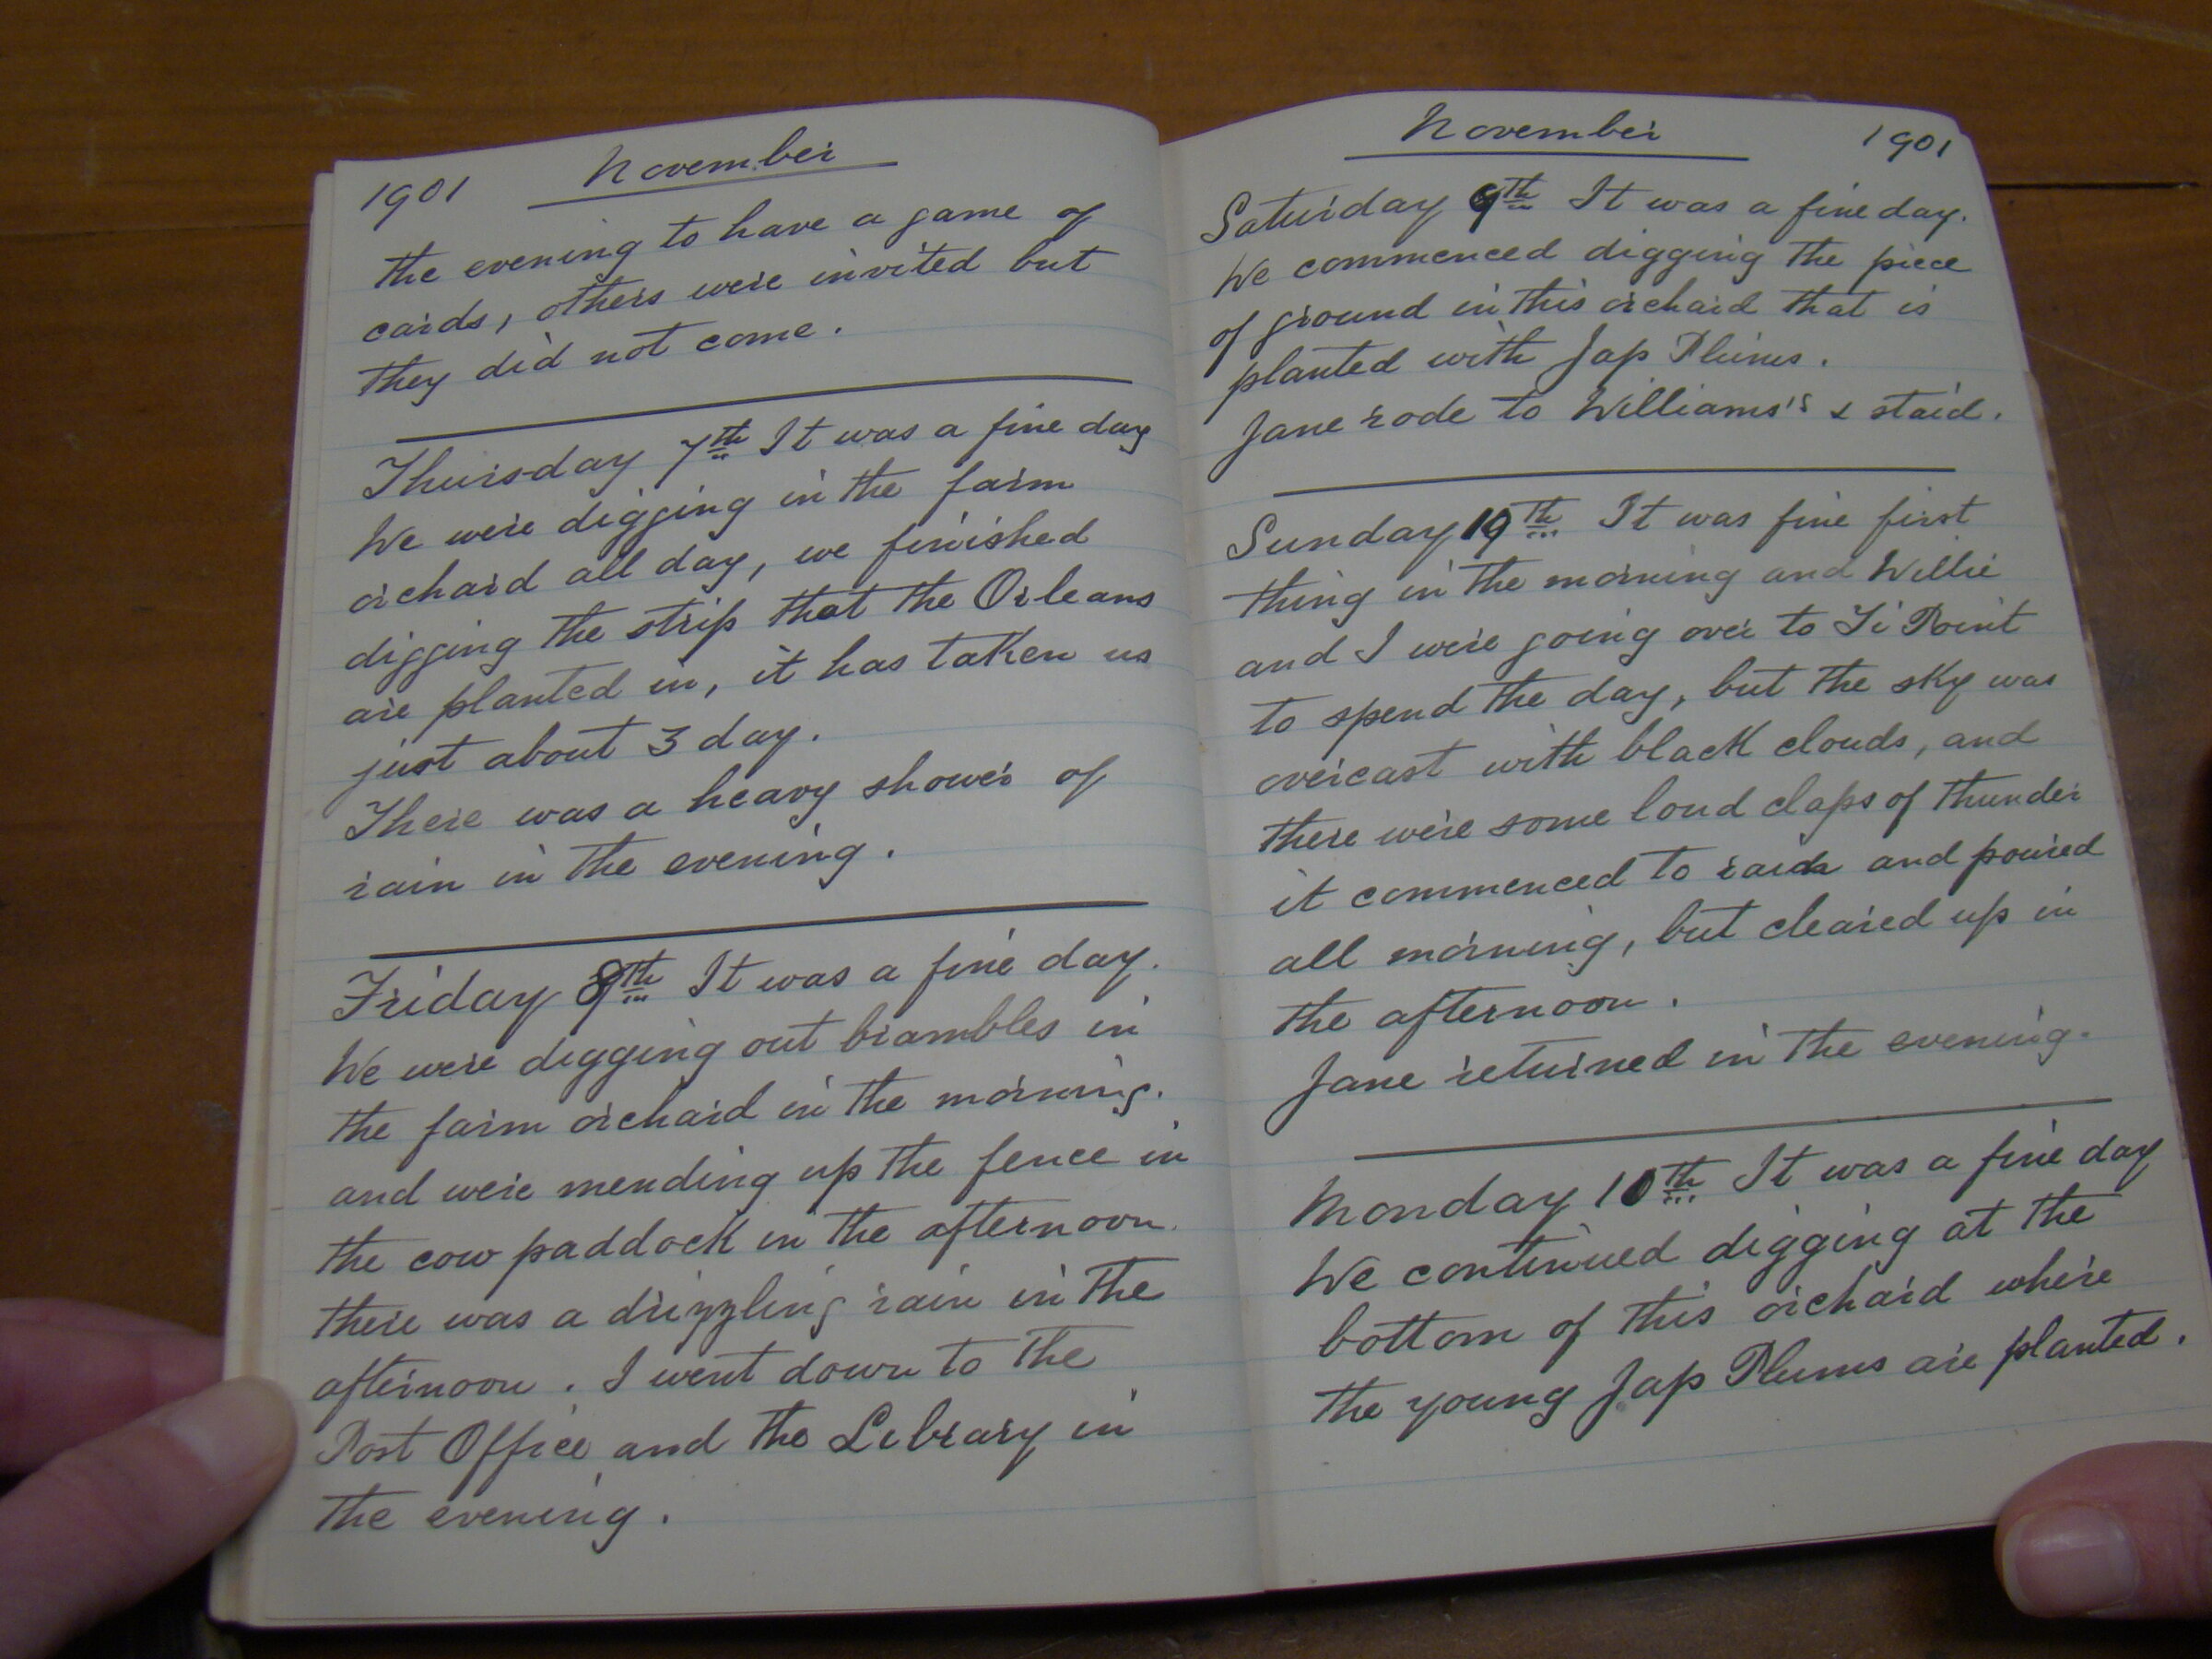 1901 November
the evening to have a game of
cards, others were invited but
they did not come.
Thursday 7th It was a fine day
We were digging in the farm
orchard all day, we finished
digging the strip that the Orleans
are planted in, it has taken us
just about 3 day.
There was a heavy shower of
rain in the evening.
Friday 8th It was a fine day.
We were digging out brambles in
the farm orchard in the morning.
and were mending up the fence in
the cow paddock in the afternoon.
there was a drizzling rain in the
afternoon. I went down to the
Post Office and the Library in
the evening.
November 1901
Saturday 9th It was a fine day.
We commenced digging the piece
of ground in this orchard that is
planted with Jap Plums.
Jane rode to Williams's & staid.
Sunday 10th It was fine first
thing in the morning and Willie
and I were going over to Ti Point
to spend the day, but the sky was
overcast with black clouds, and
there were some loud claps of thunder
it commenced to rain and poured
all morning, but cleared up in
the afternoon.
Jane returned in the evening.
Monday 10th It was a fine day
We continued digging at the
bottom of this orchard where
the young Jap Plums are planted.